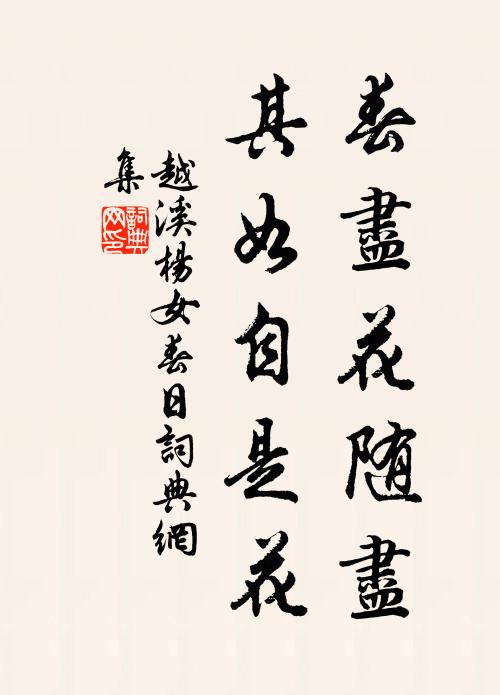 春盡花随盡
其如自是花
越溪楊女春日詞典網
集
詞典
网印